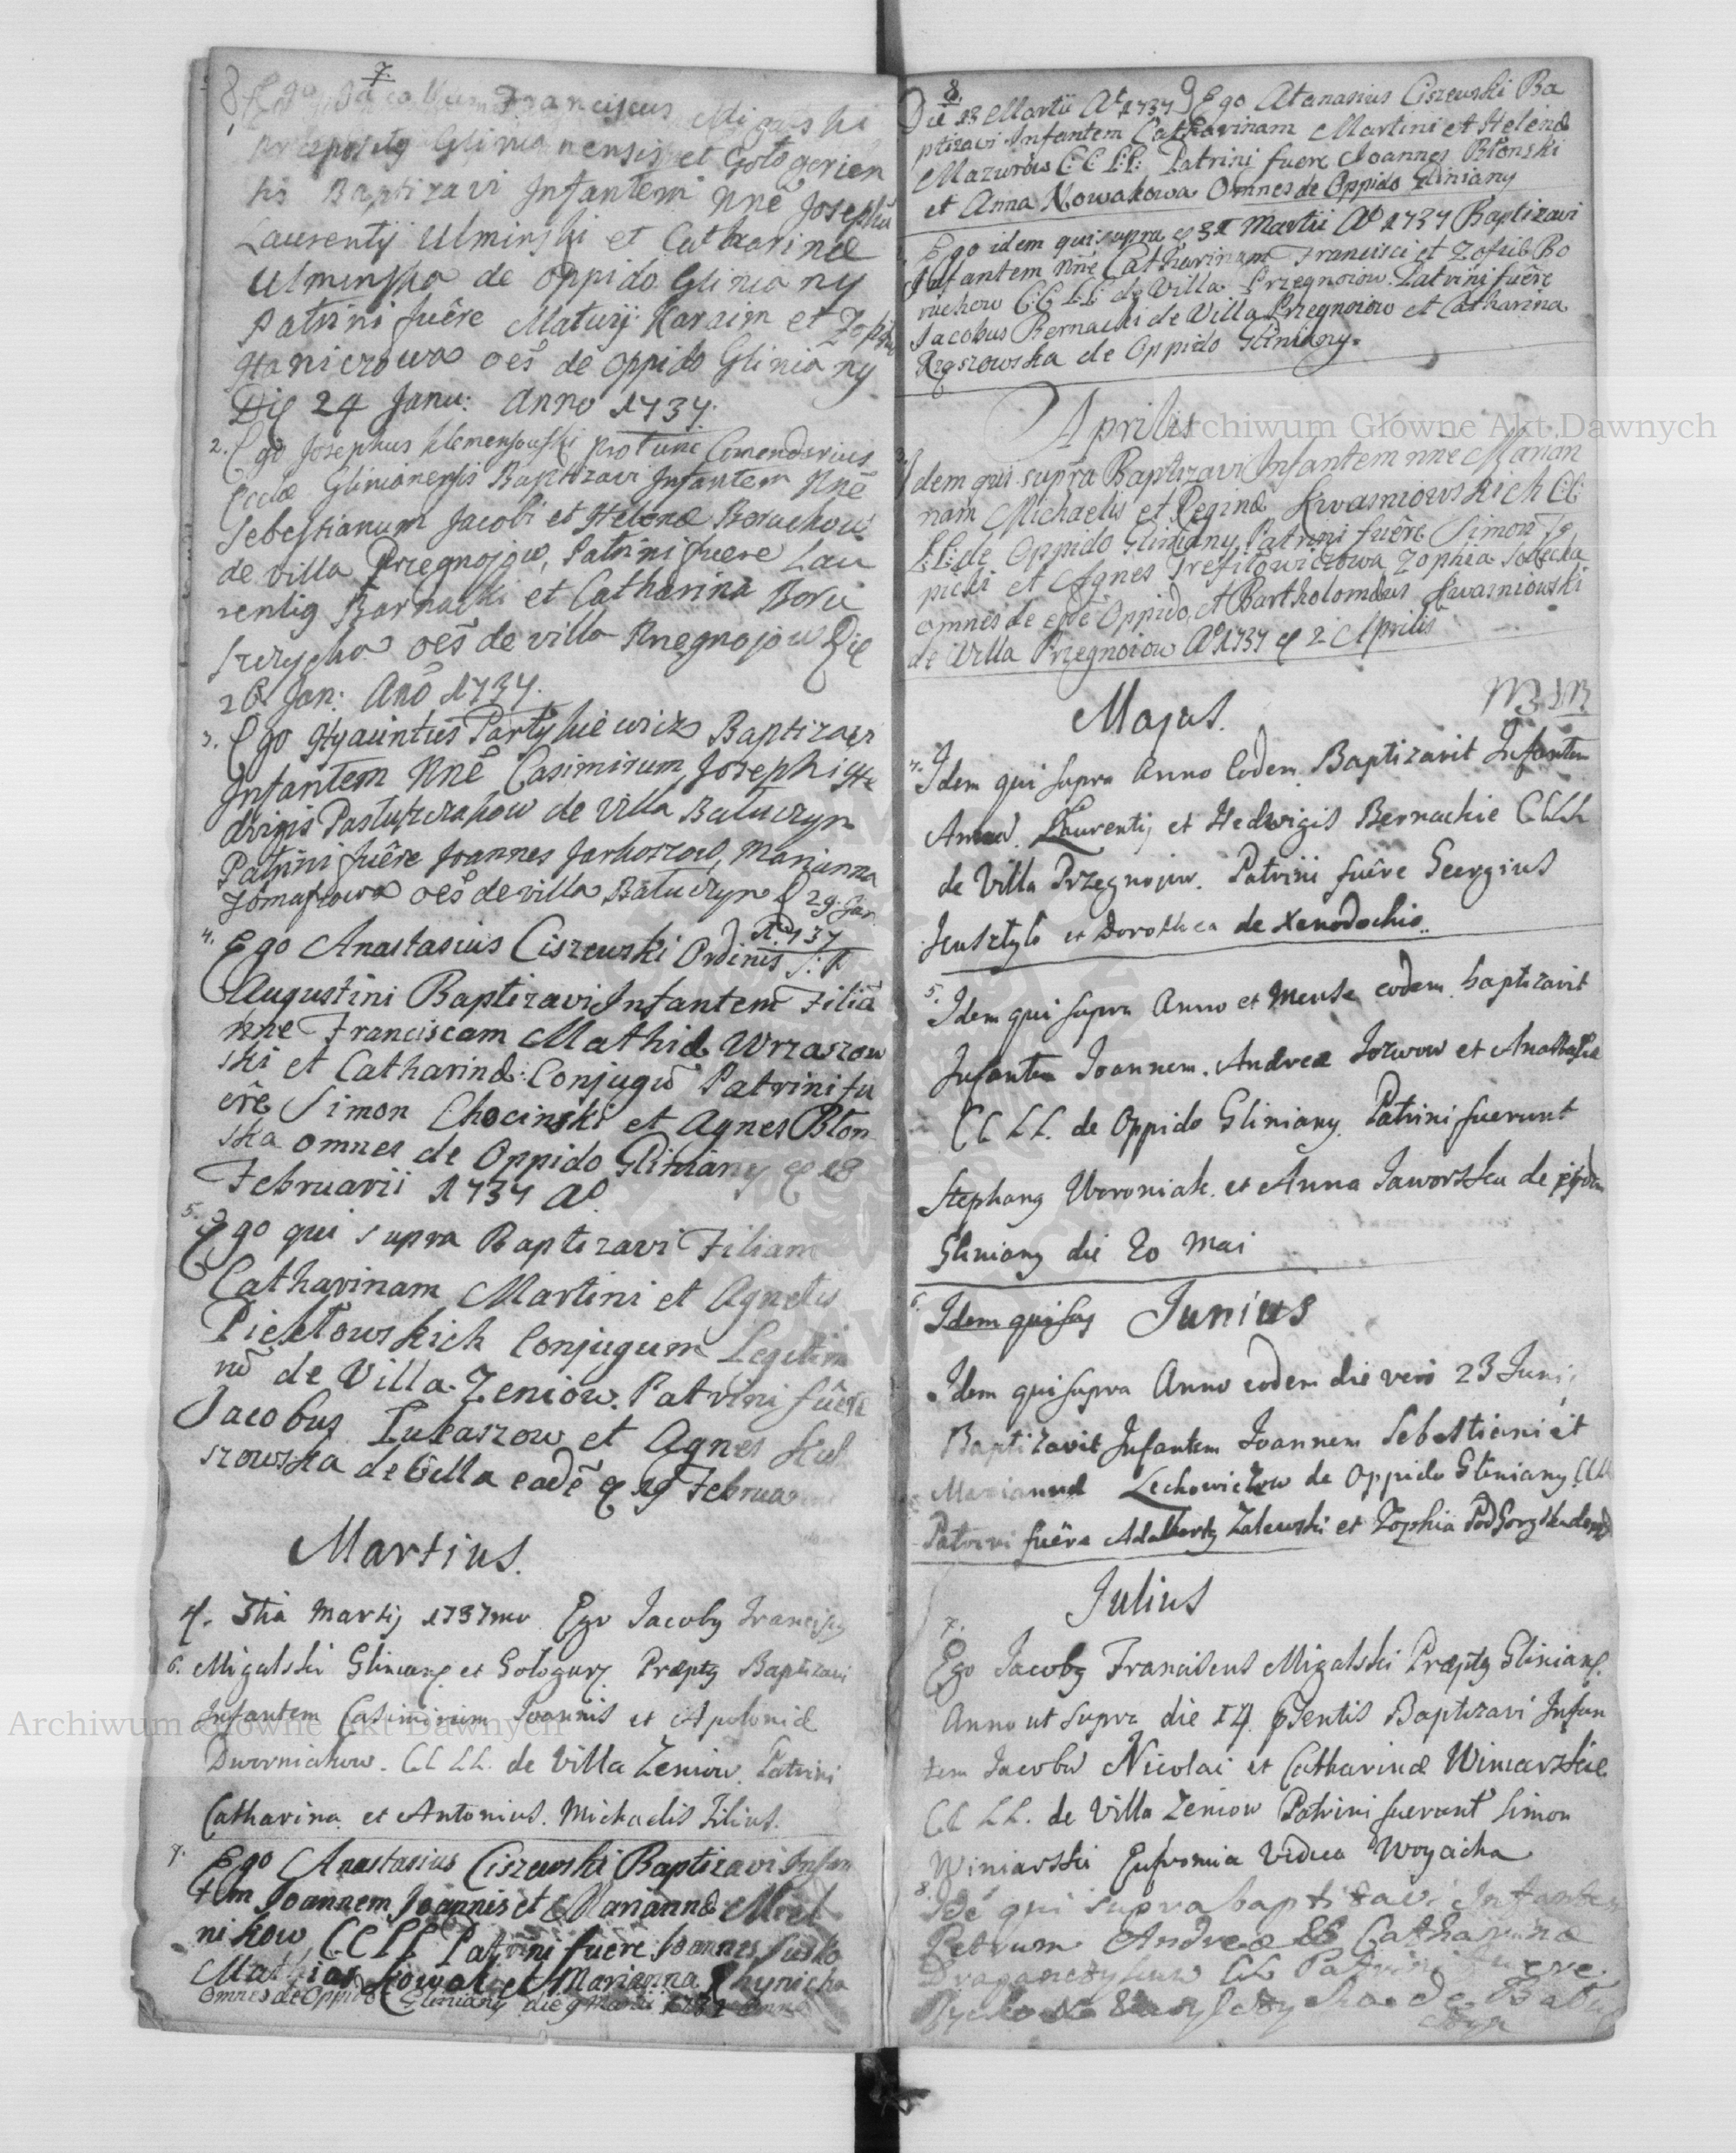 7.
Ego Jacobus Franciscus Migalski
Præpositg Glinianensis et Gologorien
sis Baptizavi Infantem Nnē Josephū
Laurentÿ Ulminski et Catharinæ
Ulminska de oppido Gliniany
Patrini fuêre Matuÿ Karaim et Zophia
Haniczowa oēs de oppido Gliniany
Die 24 Janu: Anno 1737.
2. Ego Josephus Klemensowski pro tunc Comendarius
Eccłæ Glinianensis Baptizavi Infantem Nnē
Sebestianum Jacobi et Helenæ Boruchow
de villa Przegnojow, Patrini fuere Lau
rentig Barnacki et Catharina Boru
oēs de villa Przegnojow Die
26 Jan: Anō 1737.
3. Ego Hyacintus Partykiewicz Baptizavi
Infantem Nnē Casimirum, Josephi He
dvigis Pastuszczakow de villa Batuczyn
Patrini fuêre Joannes Jarkoszow, Marianna
Tomaszowa oēs de villa Batuczyn D 29. Jan
A. 1737
4. Ego Anastasius Ciszewski Ordinis S: P.
Augustini Baptizavi Infantem Filiā
nne Franciscam Mathiæ Wrzaszow
ski et Catharinæ: Conjugū Patrini fu
êrê Simon Chocinski et Agnes Błon
ska omnes de Oppido Gliniany D 18
Februarii 1737 Aº.
5. Ego qui supra Baptizavi Filiam
Catharinam Martini et Agnetis
Piektowskich Conjugum Legitim
rū de Villa Zeniow. Patrini fuêre
Jacobus Łukaszow et Agnes
szowska de Villa eadē D 19 Februarii
Martius.
D. 3tia Martij 1737mo Ego Jacobg Franciscg
6. Migalski Glinianę. et Gologurę. Præptg Baptizavi
Infantem Casimirum Joannis et Apoloniæ
Dworniakow. CC LL. de Villa Zeniow. Patrini
Catharina et Antonius. Michaelis Filius.
7. Ego Anastasius Ciszewski Baptizavi Infan
tem Joannem Joannis et Mariannæ
nikow CCLL Patrini fuere Joannes
Mathias Nowak et Marianna
Omnes de Oppido Gliniany die 9 Martii 1737 Anno
8.
Die 13 Martii Aº 1737 Ego Atanasius Ciszewski Ba
ptizavi Infantem Catharinam Martini et Helenæ
Mazurów C:C LL: Patrini fuere Joannes Błonski
et Anna Nowakowa Omnes de Oppido Gliniany
Ego idem qui supra D 31 Martii Aº 1737 Baptizavi
Infantem Nnē Catharinam Francisci et Zofiæ Bo
ruchow CC LL de Villa Przegnoiow. Patrini fuêre
Jacobus Bernacki de Villa Przegnoiow et Catharina
Rzęszowska de Oppido Gliniany.
Aprilis
3. Idem qui supra Baptizavi Infantem nnē Marian
nam Michaelis et Reginæ Kwasniowskich CC
LL: de Oppido Gliniany Patrini fuêre Simon
picki et Agnes Trefiłowiczowa, Zophia
omnes de eodē Oppido, et Bartholomæus Kwasniowski
de Villa Przegnoiow Aº 1737 D 2 Aprilis
Majus.
4. Idem qui supra Anno Eodem Baptizavit Infantem
Annam. Laurentij et Hedwigis Bernackie CCLL
de Villa Przegnojow. Patrini fuêre Georgius
et Dorothea de Xenodochio.
5. Idem qui supra Anno et Mense eodem baptizavit
Infantem Joannem. Andreæ et Anastasiæ
CC LL. de Oppido Gliniany. Patrini fuerunt
Stephang Woroniak. et Anna Jaworska de
Gliniany die 20 Mai
6. Idem qui sup Junius
Idem qui supra Anno eodem die vero 23 Junij
Baptizavit Infantem Joannem Sebastiani et
Mariannæ Lechowiczow de Oppido Gliniany CCLL
Patrini fuêre Adalbertg Zalewski et Zophia
Julius
7.
Ego Jacobg Franciscus Migalski Præptg Glinianę.
Anno ut supra die 14. psentis Baptizavi Infan
tem Jacobū Nicolai et Catharinæ Winiarskie
CC LL. de Villa Zeniow Patrini fuerunt Simon
Winiarski Eufromia Vidua Woycicha
8. Idē qui supra baptizavi Infantem
Petrum Andreæ et Catharinæ
CL Patrini fuere
de Batu
czyn
Archiwum Główne Akt Dawnych
Archiwum Główne Akt Dawnych